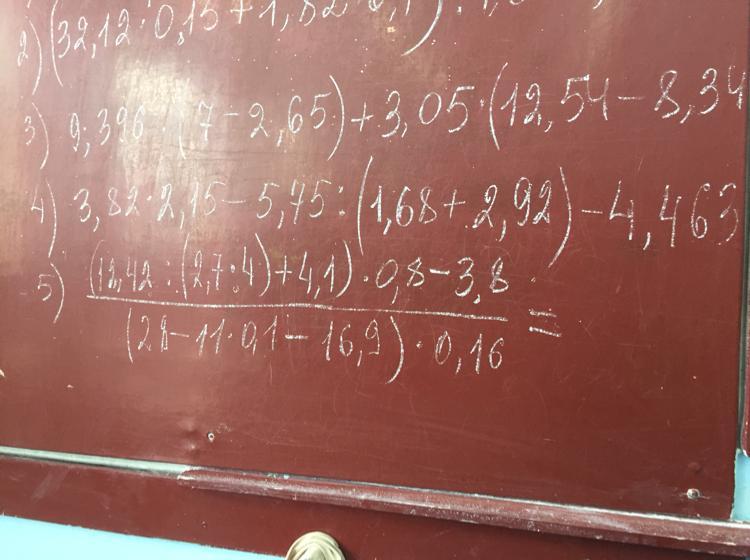 2) (32,12·0,15+1,82
3) 9,396:(7-2,65)+3,05·(12,54-8,34
4) 3,82·2,15-5,75:(1,68+2,92)-4,463
5) (12,42:(2,7:4)+4,1)·0,8-3,8
(28-11·0,1-16,9)·0,16 =